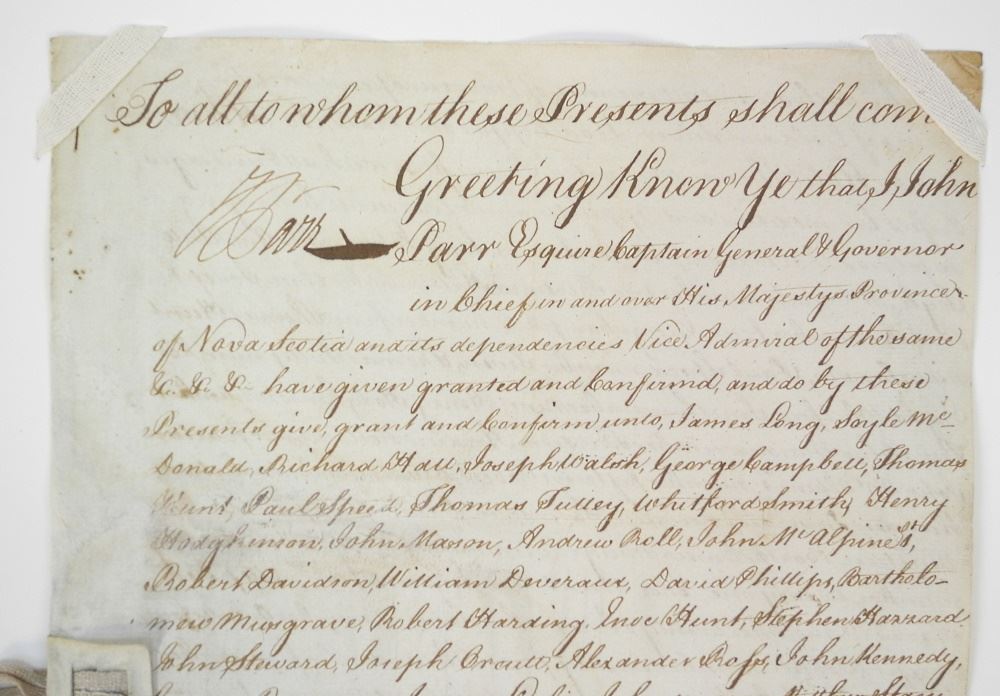 To all to whom these Presents shall com
Greeting Know Ye that I, John
Parr
Parr Esquire Captain General & Governor
in Chief in and over His Majestys Province
of Nova Scotia and its dependencies Vice Admiral of the same
&c. &c. &c. have given granted and Confirmd, and do by these
Presents give, grant and Confirm unto, James Long, Soyle Mc
Donald, Richard Hall, Joseph Walsh, George Campbell, Thomas
Hunt, Paul Speed, Thomas Tulley, Whitford Smith, Henry
Hodgkinson, John Mason, Andrew Roll, John McAlpine
Robert Davidson, William Deveraux, David Phillips, Bartholo-
mew Musgrave, Robert Harding, Hunt, Stephen Hazzard
John Steward, Joseph Orcutt, Alexander Ross, John Kennedy,